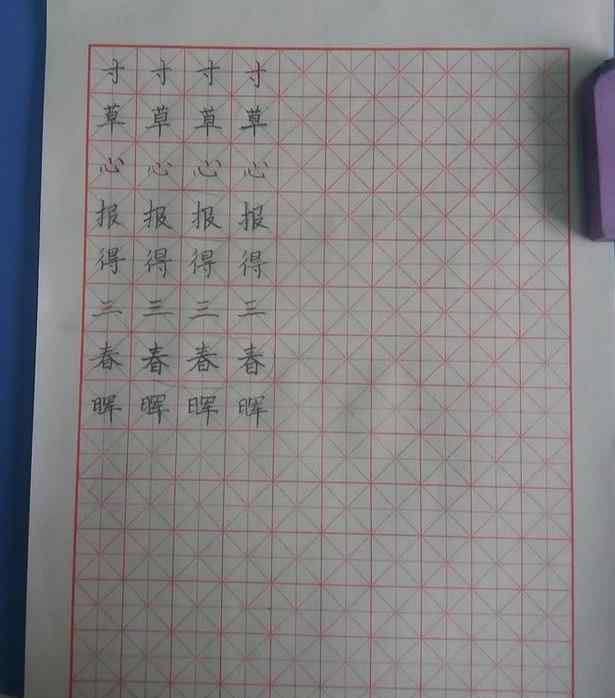 寸寸寸寸
草草草草
心心心心
报报报报
得得得得
三三三三
春春春春
晖晖晖晖